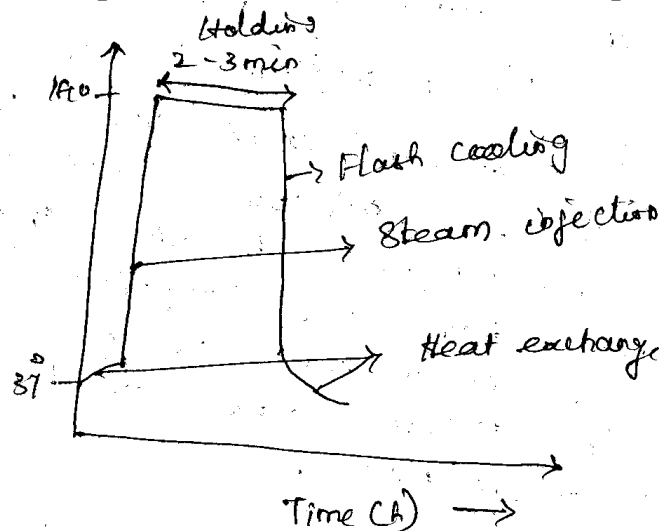 Holding
2-3 min
140
Flash cooling
Steam injection
Heat exchange
37°
Time (h)